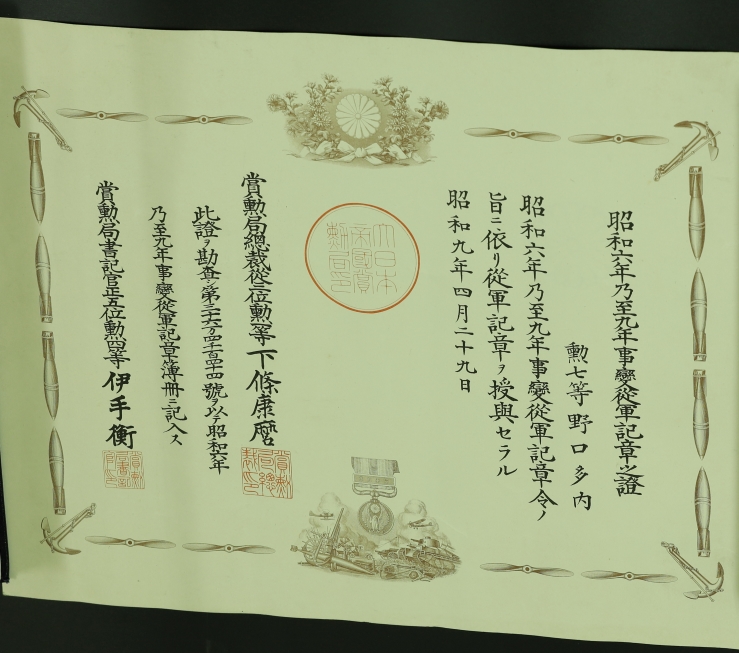 昭和六年乃至九年事變從軍記章之證
勲七等野口多内
昭和六年乃至九年事變從軍記章令ノ
旨ニ依リ從軍記章ヲ授與セラル
昭和九年四月二十九日
大日本帝國賞勲局印
賞勲局總裁從三位勲一等下條康麿
此證ヲ勘査シ第三十六万四千百四十四號ヲ以テ昭和六年
乃至九年事變從軍記章簿冊ニ記入ス
賞勲局書記官正五位勲四等伊手衡